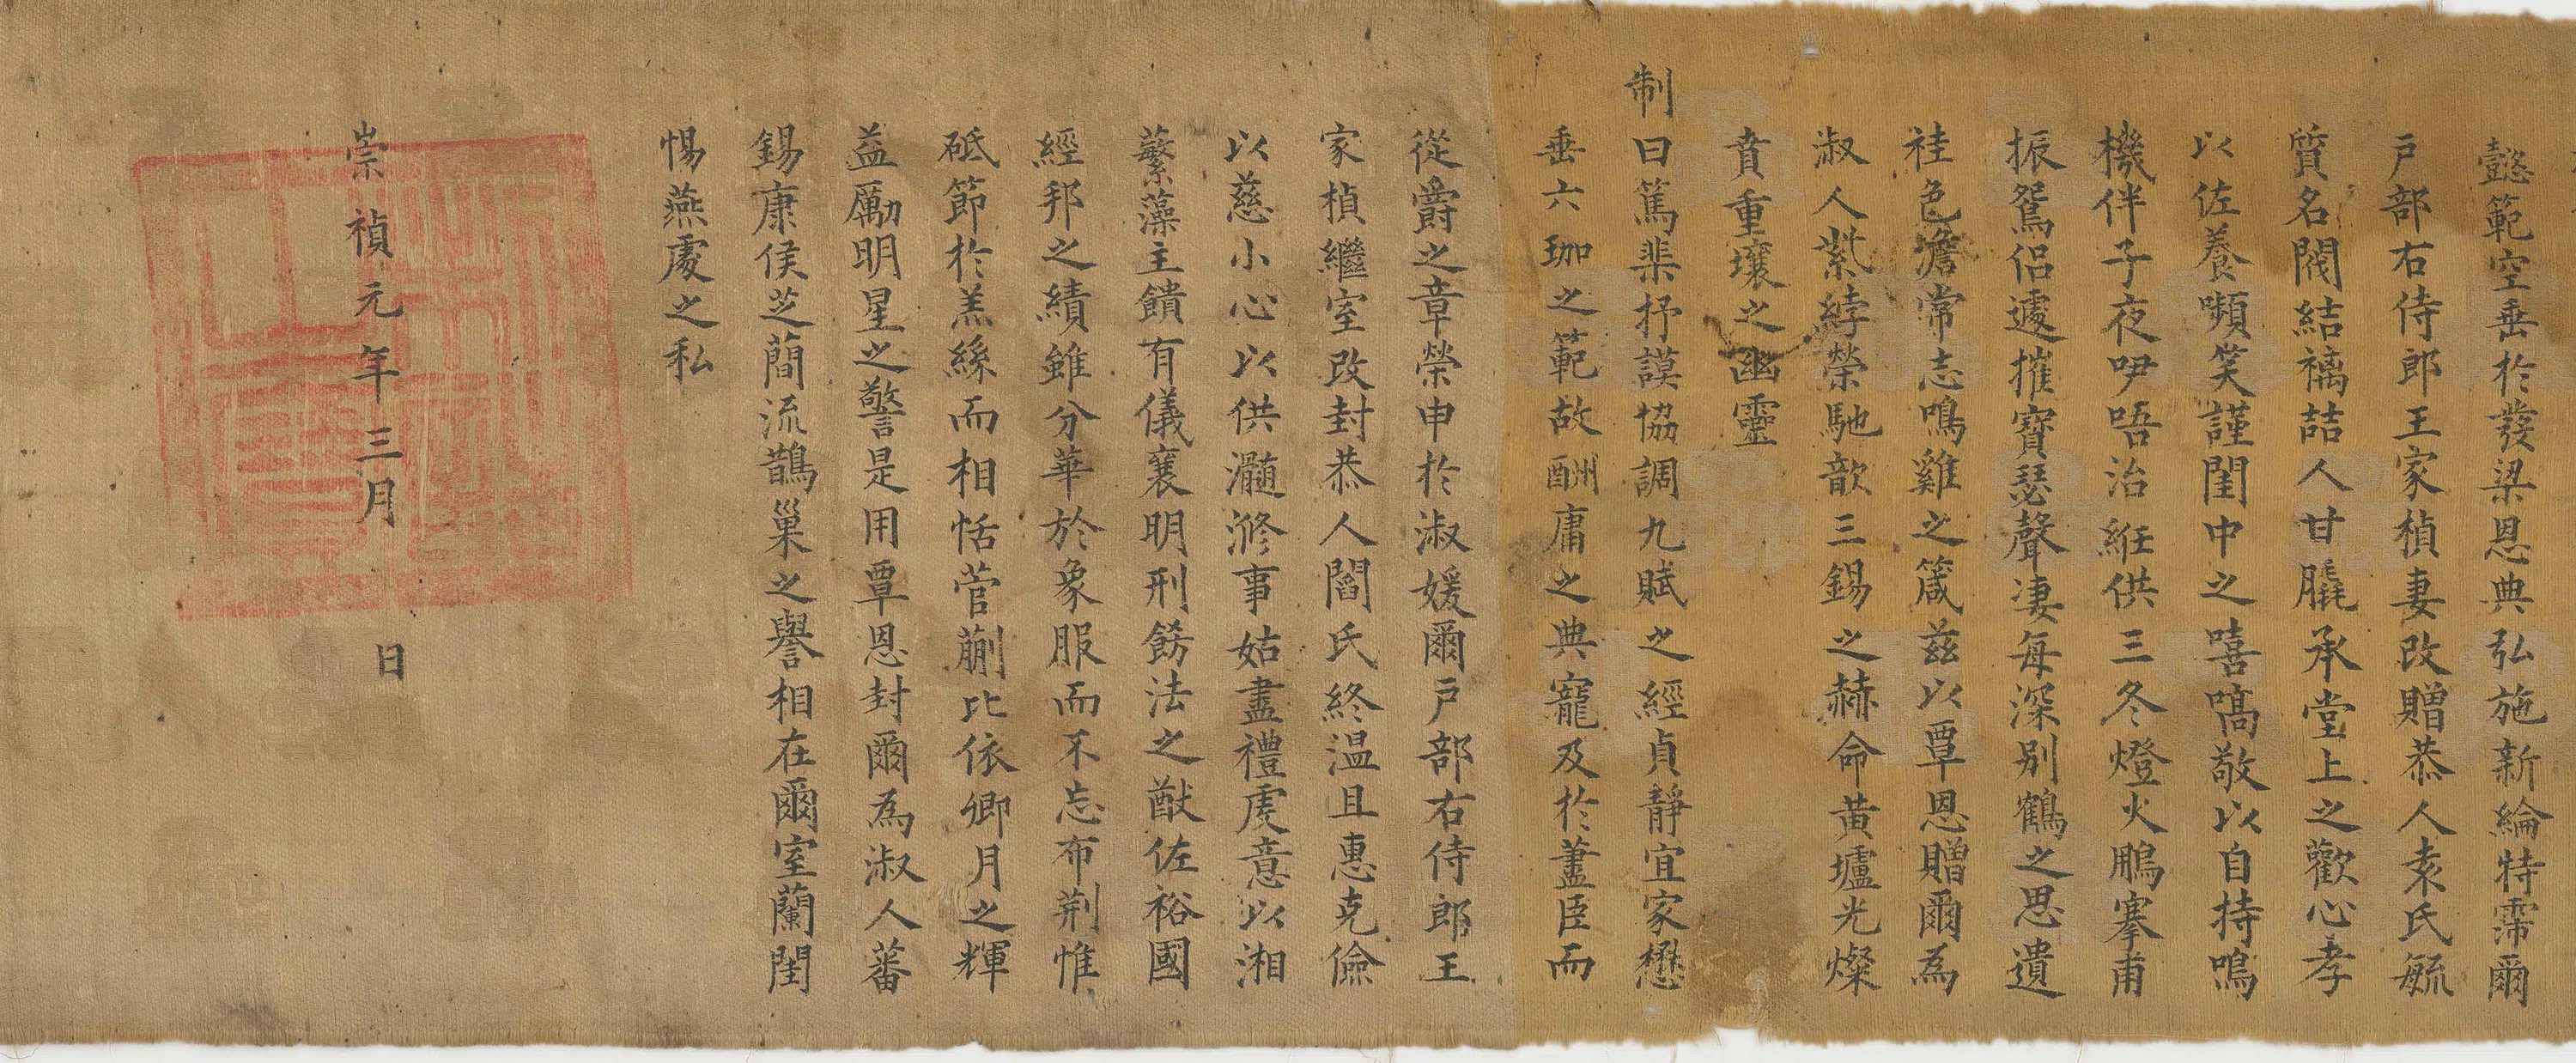 懿範空垂於發梁恩典弘施新綸特霈爾
户部右侍郎王家楨妻改贈恭人袁氏毓
質名閥結褵喆人甘膬承堂上之歡心孝
以佐養嚬笑謹閨中之嘻嗃敬以自持鳴
機伴子夜咿唔治絍供三冬燈火鵬搴甫
振鴛侶遽摧寶瑟聲淒每深别鶴之思遺
袿色澹常志鳴雞之箴兹以覃恩贈爾為
淑人紫綍榮馳歆三錫之赫命黄壚光燦
賁重壤之幽靈
制曰篤棐抒謨協調九賦之經貞靜宜家懋
垂六珈之範故酬庸之典寵及於藎臣而
從爵之章榮申於淑媛爾户部右侍郎王
家楨繼室改封恭人閻氏終温且惠克儉
以慈小心以供瀡滫事姑盡禮虔意以湘
蘩藻主饋有儀襄明刑飭法之猷佐裕國
經邦之績雖分華於象服而不忘布荆惟
砥節於羔絲而相恬菅蒯比依卿月之輝
益勵明星之警是用覃恩封爾為淑人蕃
錫康侯芝蕳流鵲巢之譽相在爾室蘭閨
惕燕處之私
崇禎元年三月 日